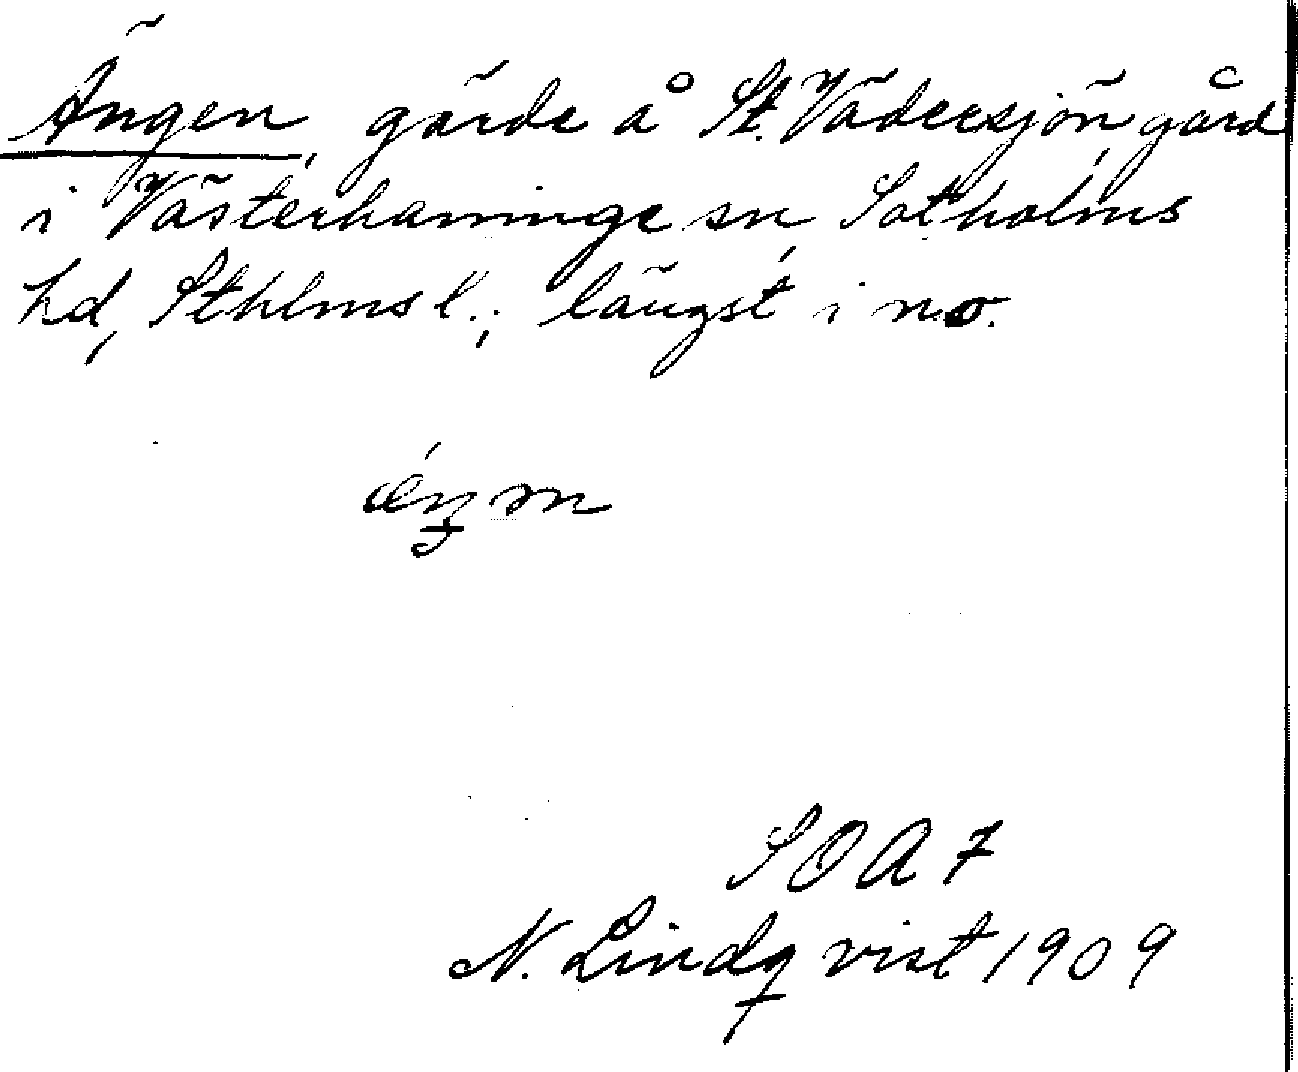 Ängen, gärde å St. Vädersjön gård
i Västerhaninge sn, Sotholms
hd, Sthlms l.; längst i no.
S O A F
N. Lindqvist 1909